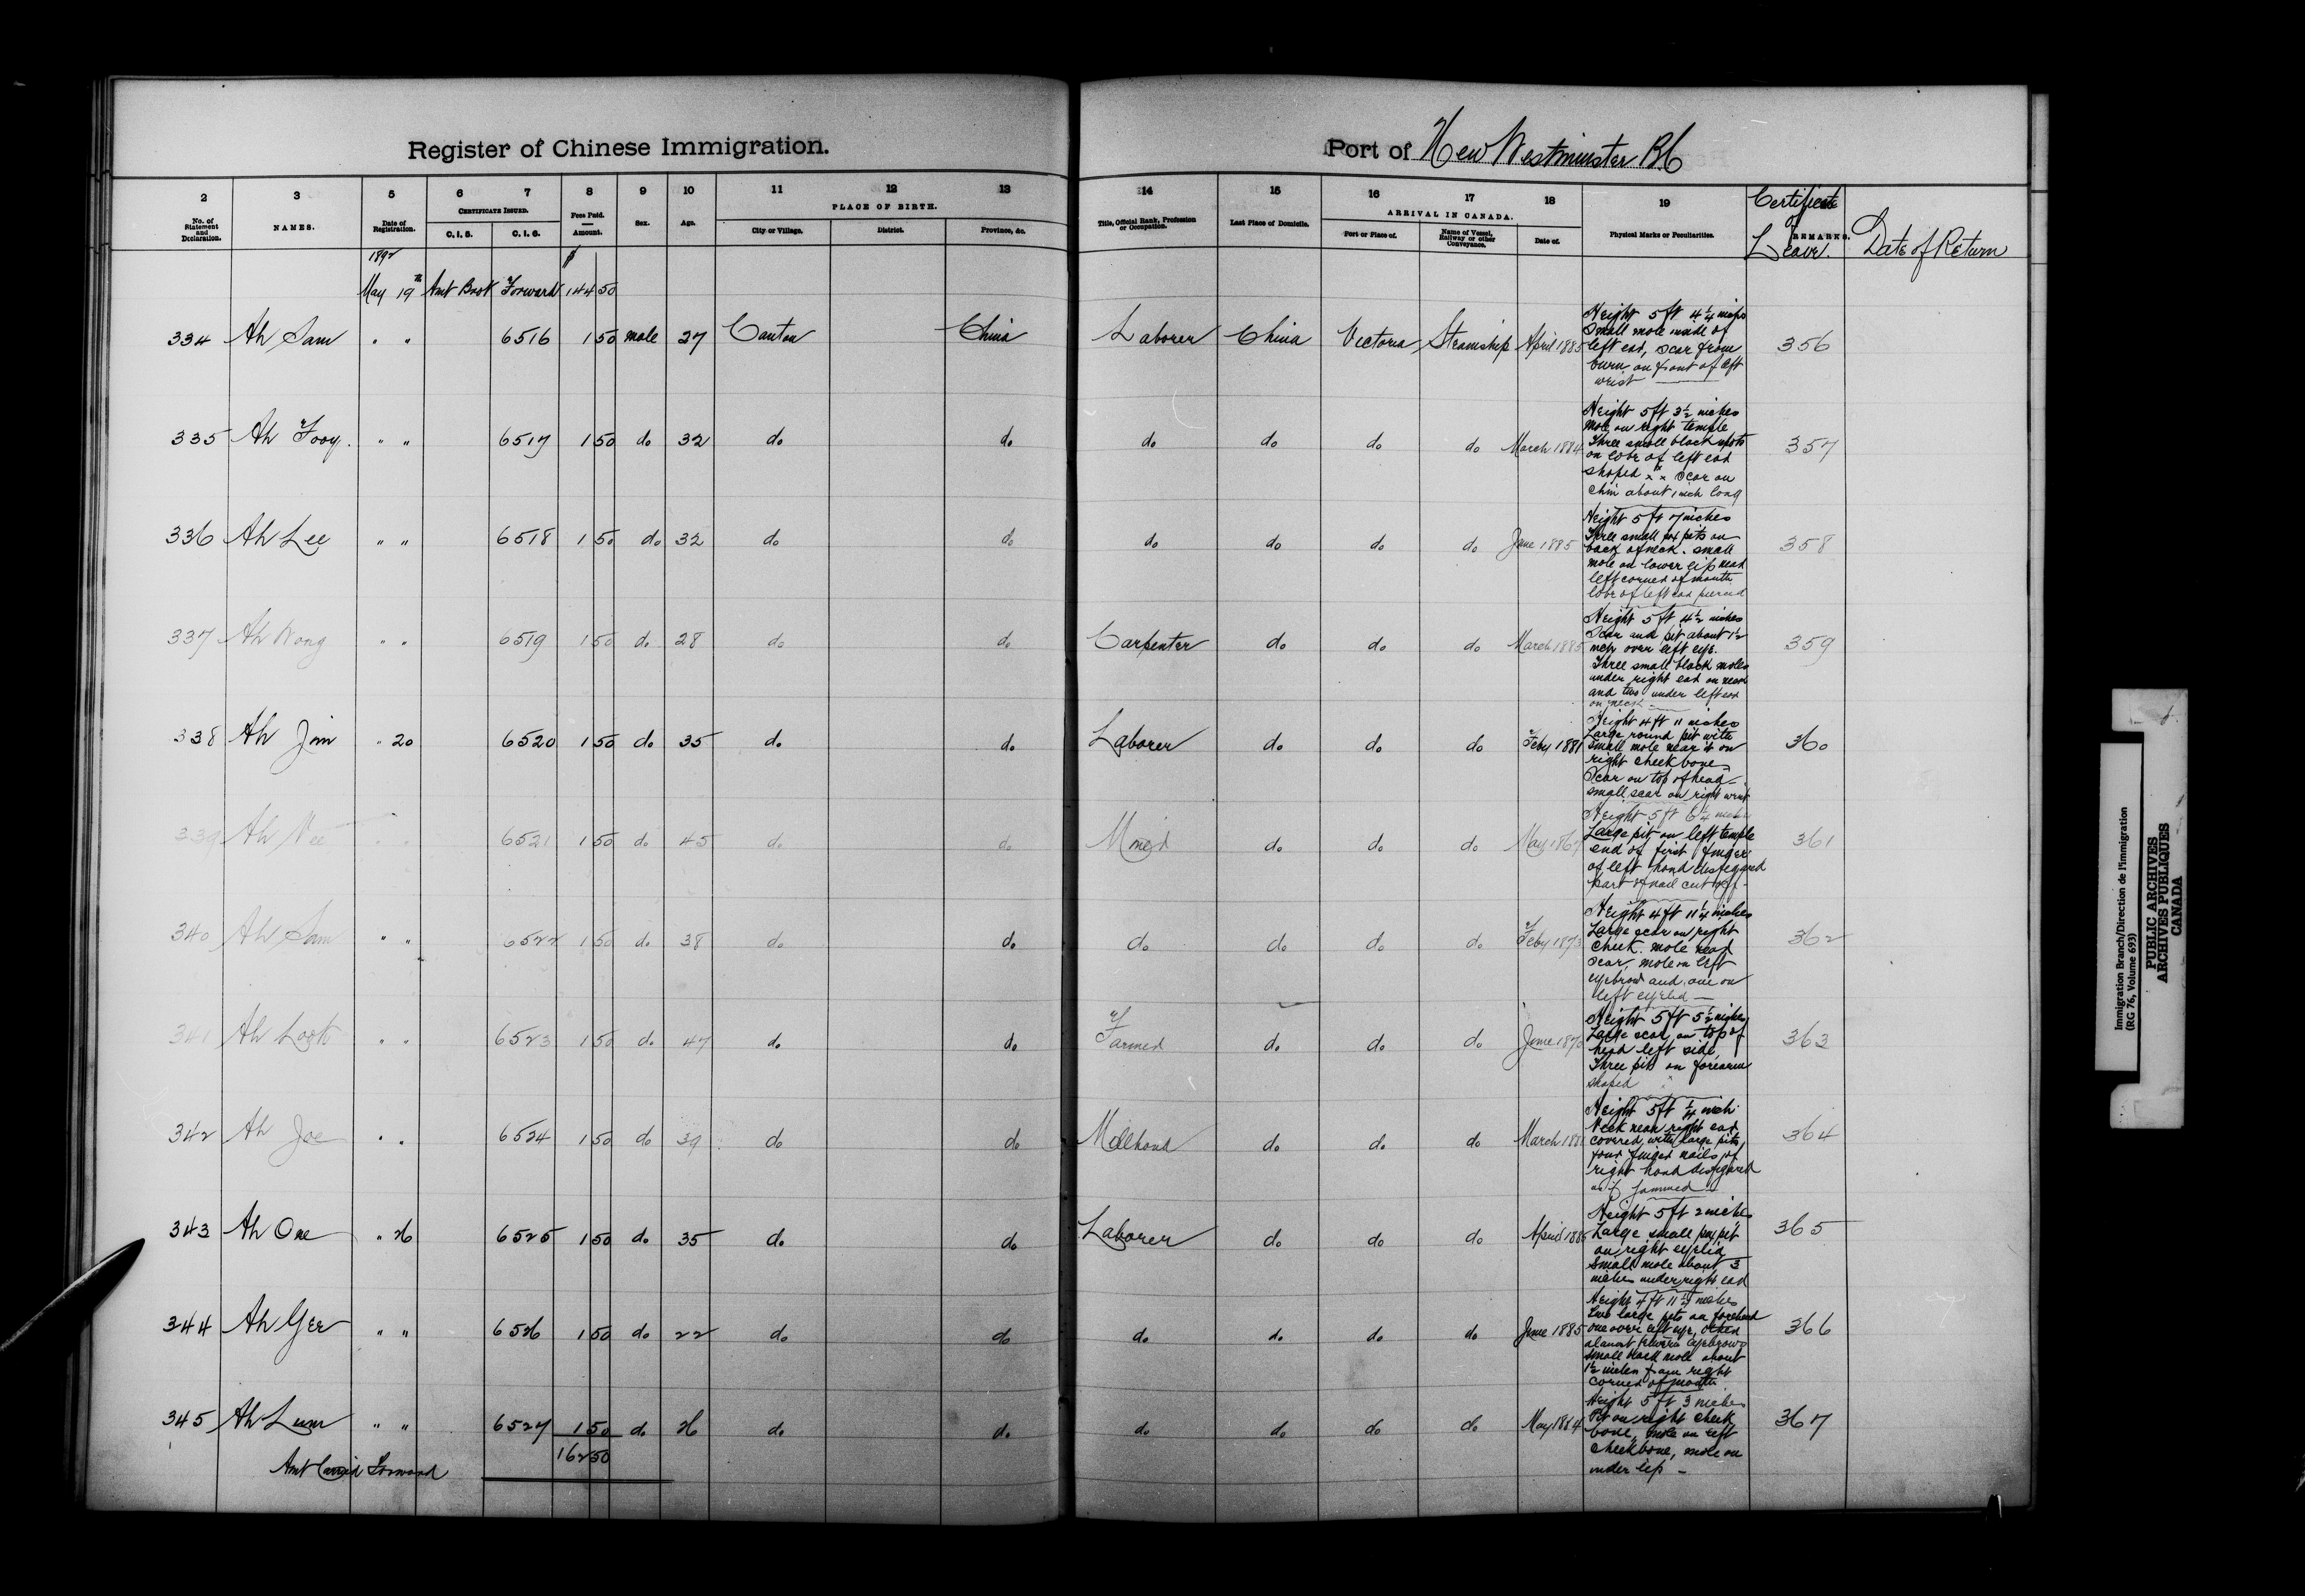 Register of Chinese Immigration.
Port of New Westminster B.C
2 3 5 6 7 8 9 10 11 12 13 14 15 16 17 18 19
No. of Statement and Declaration. NAMES. Date of Registration. CERTIFICATE ISSUED. C. I. 5. C. I. 6. Fees Paid. Amount. Sex. Age. PLACE OF BIRTH. City or Village. District. Province, &c. Title, Official Rank, Profession or Occupation. Last Place of Domicile. ARRIVAL IN CANADA. Port or Place of. Name of Vessel, Railway or other Conveyance. Date of. Physical Marks or Peculiarities. Certificate of Leave. REMARKS. Date of Return
1892 $
May 19th Amt Brot Forward 144 50
334 Ah Sam " " 6516 1 50 male 27 Canton China Laborer China Victoria Steamship April 1885 356
Height 5 ft 4 1/4 inches
Small mole inside of
left ear, scar from
burn on front of left
wrist
335 Ah Fooy. " " 6517 1 50 do 32 do do do do do do March 1884 357
Height 5 ft 3 1/2 inches
mole on right temple
Three small black spots
on lobe of left ear
shaped x x x Scar on
chin about 1 inch long
336 Ah Lee " " 6518 1 50 do 32 do do do do do do June 1885 358
Height 5 ft 7 inches
Three small pox pits on
back of neck. small
mole on lower lip near
left corner of mouth
lobe of left ear pierced
337 Ah Wong " " 6519 1 50 do 28 do do Carpenter do do do March 1885 359
Height 5 ft 4 1/2 inches
Scar and pit about 1 1/2
inch over left eye.
Three small black moles
under right ear on neck
and two under left ear
on neck
338 Ah Jim " 20 6520 1 50 do 35 do do Laborer do do do Feby 1881 360
Height 4 ft 11 inches
Large round pit with
small mole near it on
right cheek bone
Scar on top of head
small scar on right wrist
339 Ah " " 6521 1 50 do 45 do do Miner do do do May 361
Height 5 ft 6 1/4 inches
Large pit on left temple
end of first finger
of left hand disfigured
part of nail cut off
340 Ah Sam " " 6522 1 50 do 38 do do do do do do Feby 1873 362
Height 4 ft 11 1/4 inches
Large scar on right
cheek. mole near
scar, mole on left
eyebrow and one on
left eyelid
341 Ah " " 6523 1 50 do 47 do do Farmer do do do June 363
Height 5 ft 5 1/2 inches
Large scar on top of
head left side,
Three pits on forearm
shaped
342 Ah Joe " " 6524 1 50 do 39 do do Millhand do do do March 364
Height 5 ft 1/4 inch
Neck near right ear
covered with large pits,
four finger nails of
right hand disfigured
as if jammed
343 Ah One " 26 6525 1 50 do 35 do do Laborer do do do April 1885 365
Height 5 ft 2 inches
Large small pox pit
on right eyelid
Small mole about 3
inches under right ear
344 Ah Yee " " 6526 1 50 do 22 do do do do do do June 1885 366
Height 4 ft 11 1/4 inches
Two large pits on forehead
one over left eye, other
almost between eyebrows
small black mole about
1 1/2 inches from right
corner of mouth
345 Ah Lum " " 6527 1 50 do 26 do do do do do do May 1884 367
Height 5 ft 3 inches
Pit on right cheek
bone, mole on left
cheekbone, mole on
under lip
Amt Carried Forward 162 50
Immigration Branch/Direction de l'immigration
(RG 76, Volume 693)
PUBLIC ARCHIVES
ARCHIVES PUBLIQUES
CANADA